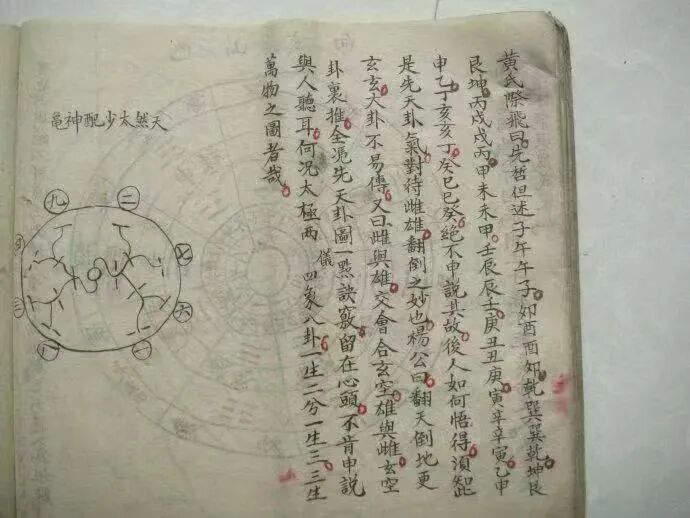 黃氏際飛曰先哲但述子午午子卯酉酉卯乾巽巽乾坤艮
艮坤丙戌戌丙甲未未甲壬辰辰壬庚丑丑庚寅辛辛寅乙申
申乙丁亥亥丁癸巳巳癸絕不申說其故後人如何悟得須知此
是先天卦氣對待雌雄翻倒之妙也楊公曰翻天倒地更
玄玄大卦不易傳又曰雌與雄交會合玄空雄與雌玄空
卦裏推全凴先天卦圖一點訣竅留在心頭不肯申說
與人聽耳何況太極兩儀四象八卦一生二分一生三三生
萬物之圖者哉
天然太少配神龜
九
二
七
六
一
八
三